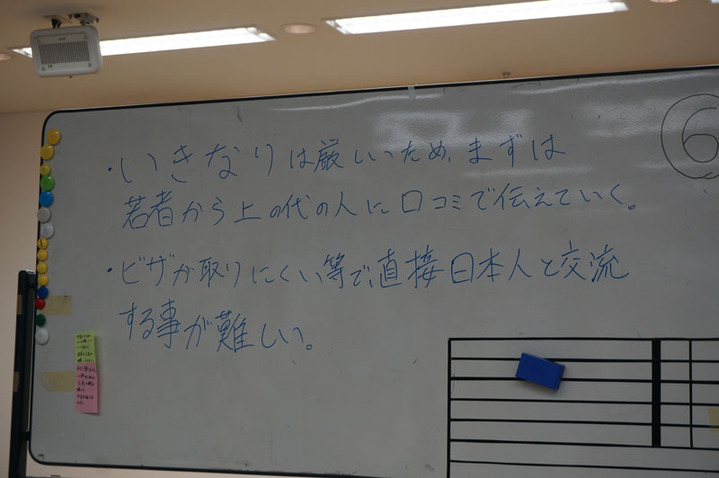 ・いきなりは厳しいため、まずは
若者から上の代の人に口コミで伝えていく。
・ビザが取りにくい等で、直接日本人と交流
する事が難しい。
⑥